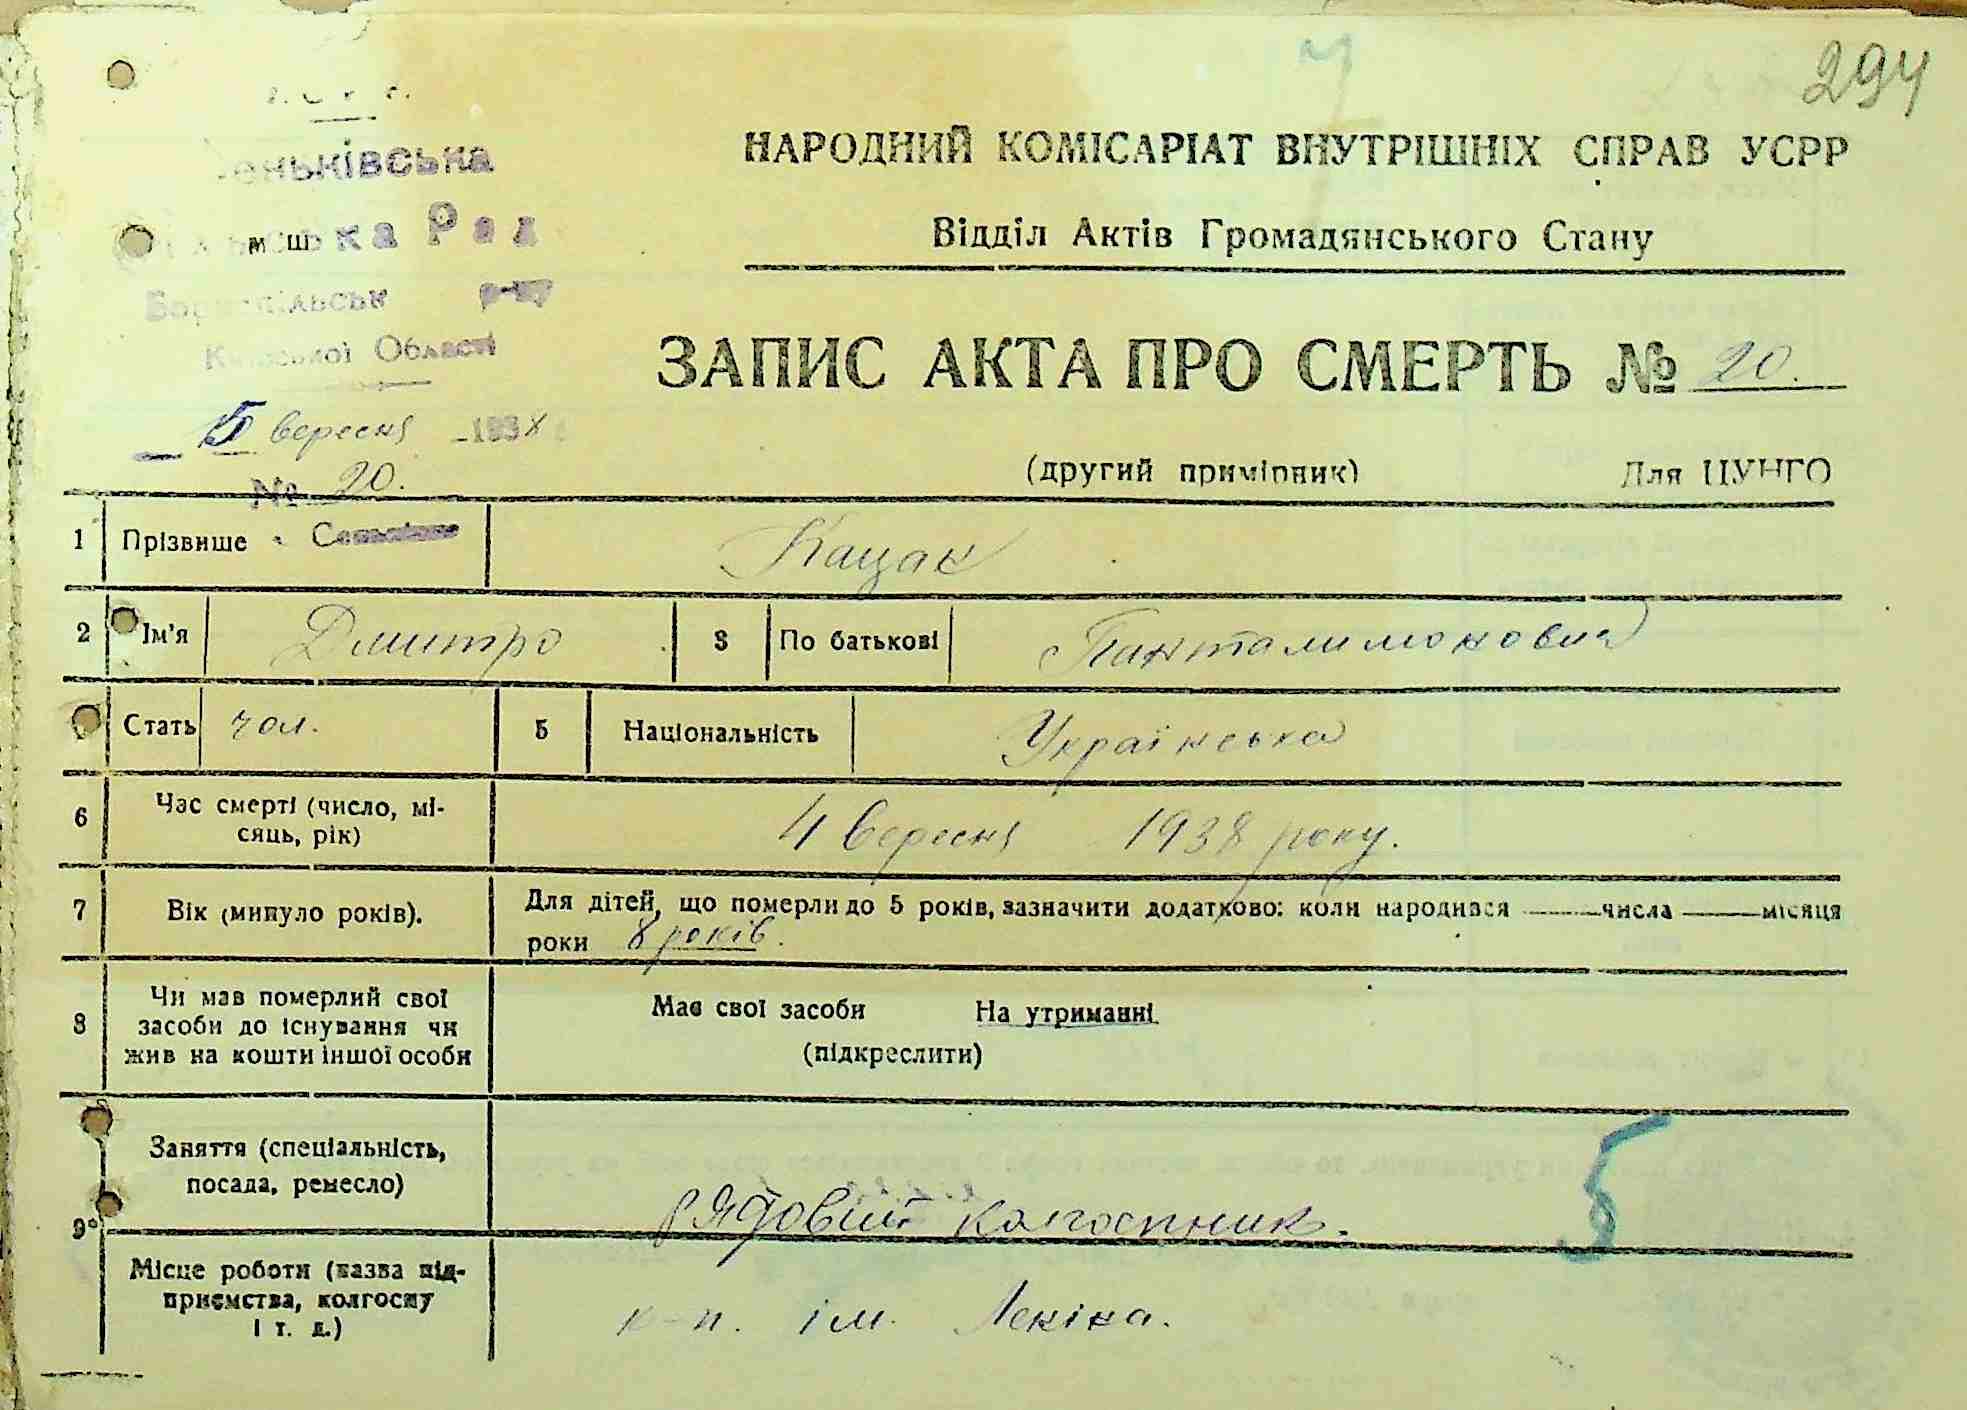 294
У.С.Р.Р.
еньківська
ська Рад
Бориспільськ р-ну
Київської Області
5 вересня 1938
№ 20.
НАРОДНИЙ КОМІСАРІАТ ВНУТРІШНІХ СПРАВ УСРР
Відділ Актів Громадянського Стану
ЗАПИС АКТА ПРО СМЕРТЬ № 20.
(другий примірник) Для ЦУНГО
1 Прізвище Кацан
2 Ім'я Дмитро 3 По батькові Панталимонович
Стать чол. 5 Національність Українська
6 Час смерті (число, мі-
сяць, рік) 4 вересня 1938 року.
7 Вік (минуло років). Для дітей, що померли до 5 років, зазначити додатково: коли народився ——— числа ——— місяця
роки 8 років.
8 Чи мав померлий свої
засоби до існування чи
жив на кошти іншої особи
Має свої засоби На утриманні
(підкреслити)
9 Заняття (спеціальність,
посада, ремесло) рядовий колгоспник.
Місце роботи (назва під-
приємства, колгоспу
і т. д.) к-п. ім. Леніна.
5